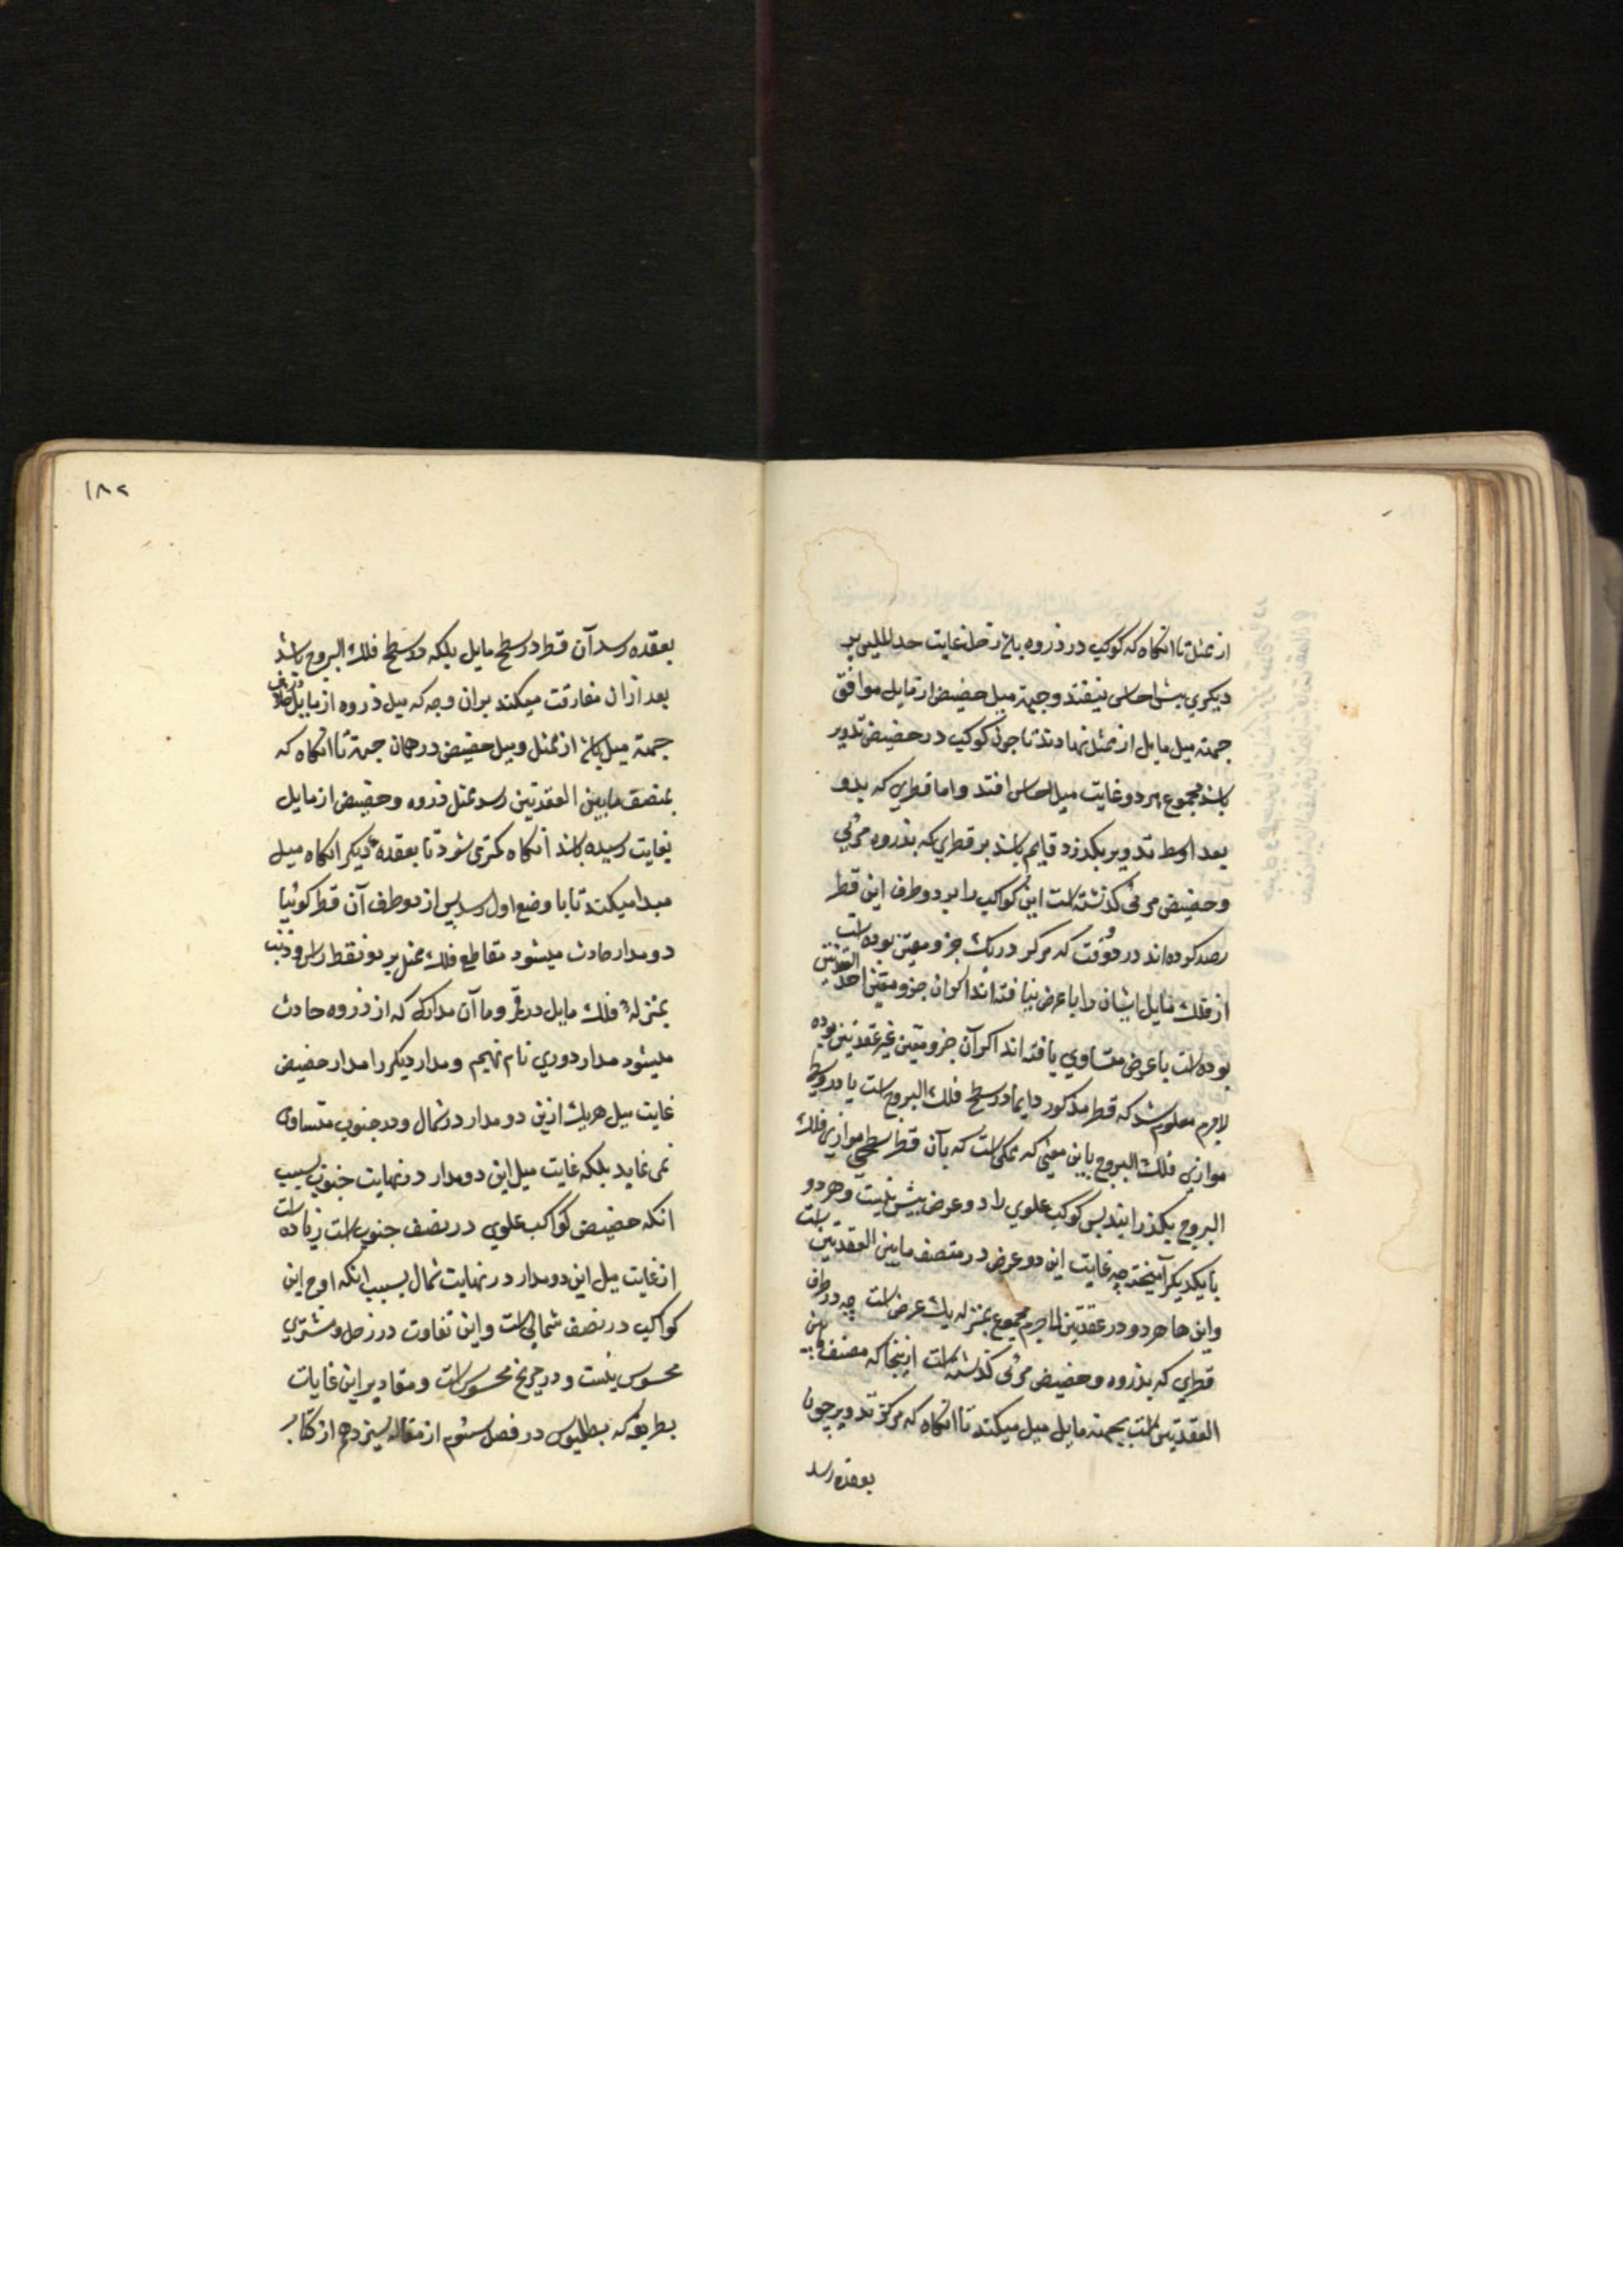 از ممثل تا آنکاه که کوکب در ذروه باشد از غایت احد المیلین بر
دیکری بیش احساس نیفتد و جهة میل حضیض از مایل موافق
جهة میل مایل از ممثل نهادند تا چون کوکب در حضیض تدویر
باشد مجموع هر دو غایت میل احساس افتد و اما قطری که بدو
بعد اوسط تدویر بکذرد و قایم باشد بر قطری که بذروه مرئی
و حضیض مرئی کذشته است این کواکب را بر دو طرف این قطر
رصد کرده اند در دو وقت که مرکز در یک جزو معین بوده است
از فلک مایل ایشان را با عرض نیافته اند اکر ان جزو معین احد العقدتین
بوده است یا عرض متساوی یافته اند اکر آن جزو معین غیر عقدتین بوده
لاجرم معلوم شد که قطر مذکور دایما در سطح فلک البروج است یا در سطح
موازی فلک البروج باین معنی که ممکن است که بآن قطر سطحی موازی فلک
البروج بکذرانند پس کوکب علوی را دو عرض بیش نیست و هر دو
با یکدیکر آمیخته چه غایت این دو عرض در منتصف ما بین العقدتین است
و این جا هر دو در عقدتین لاجرم مجموع بمنزله یک عرض است چه در طرف
قطری که بذروه و حضیض مرئی کذشته است ازینجا که منتصف ما بین
العقدتین است بجهة مایل میل میکند تا آنکاه که مرکز تدویر چون
بعقده رسد
۱۸۲
بعقده رسد آن قطر در سطح مایل بلکه در سطح فلک البروج باشد
بعد از ان مفارقت میکند بران وجه که میل ذروه از مایل در خلاف
جهة میل باشد از ممثل و میل حضیض در همان جهة تا آنکاه که
بمنتصف ما بین العقدتین رسد میل ذروه و حضیض از مایل
بغایت رسیده باشد آنکاه کمتر می شود تا بعقدهٔ دیکر آنکاه میل
مبدا میکند تا با وضع اول رسد پس از دو طرف آن قطر کوئیا
دو مدار حادث میشود مقاطع فلک ممثل بر دو نقطه راس و ذنب
بمنزلهٔ فلک مایل در قمر و ما آن مدار که از ذروه حادث
میشود مدار دوری نام نهیم و مدار دیکر را مدار حضیض
غایت میل هر یک ازین دو مدار در شمال و در جنوب متساوی
نمی نماید بلکه غایت میل این دو مدار در نهایت جنوب بسبب
انکه حضیض کواکب علوی در نصف جنوب است زیاده است
از غایت میل این دو مدار در نهایت شمال بسبب انکه اوج این
کواکب در نصف شمالی است و این تفاوت در زحل و مشتری
محسوس نیست و در مریخ محسوس است و مقادیر این غایات
بطریقی که بطلمیوس در فصل سئوم از مقاله سیزدهم از کتاب